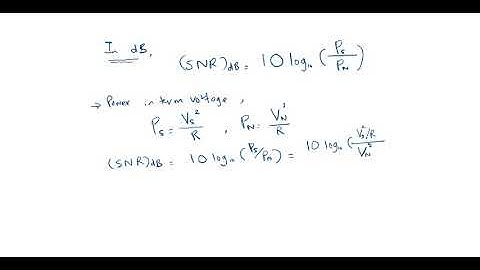 In dB,
(SNR)dB = 10 log₁₀ (Ps/PN)
→ Power in term voltage,
Ps = Vs²/R , PN = VN²/R
(SNR)dB = 10 log₁₀ (Ps/PN) = 10 log₁₀ (Vs²/R / VN²